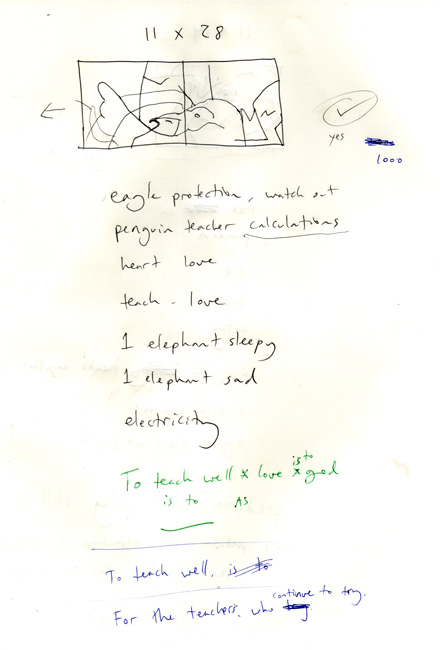 11 x 28
yes
1000
eagle protection, watch out
penguin teacher calculations
heart love
teach - love
1 elephant sleepy
1 elephant sad
electricity
is to
To teach well x love x good
is to As
To teach well, is to
continue to try.
For the teachers, who try